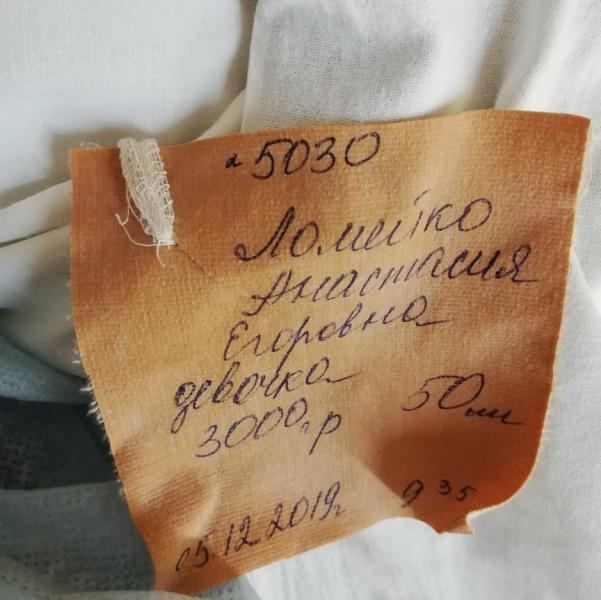 № 5030
Ломейко
Анастасия
Егоровна
девочка
3000гр 50см
05.12.2019г 9 35